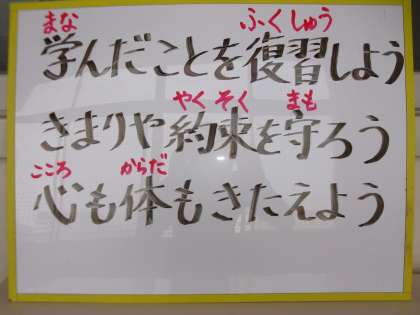 まな ふくしゅう
学んだことを復習しよう
やくそく まも
きまりや約束を守ろう
こころ からだ
心も体もきたえよう